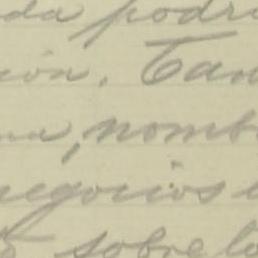 da podr
ión. Tam
na, nomb
negocios
sobre lo